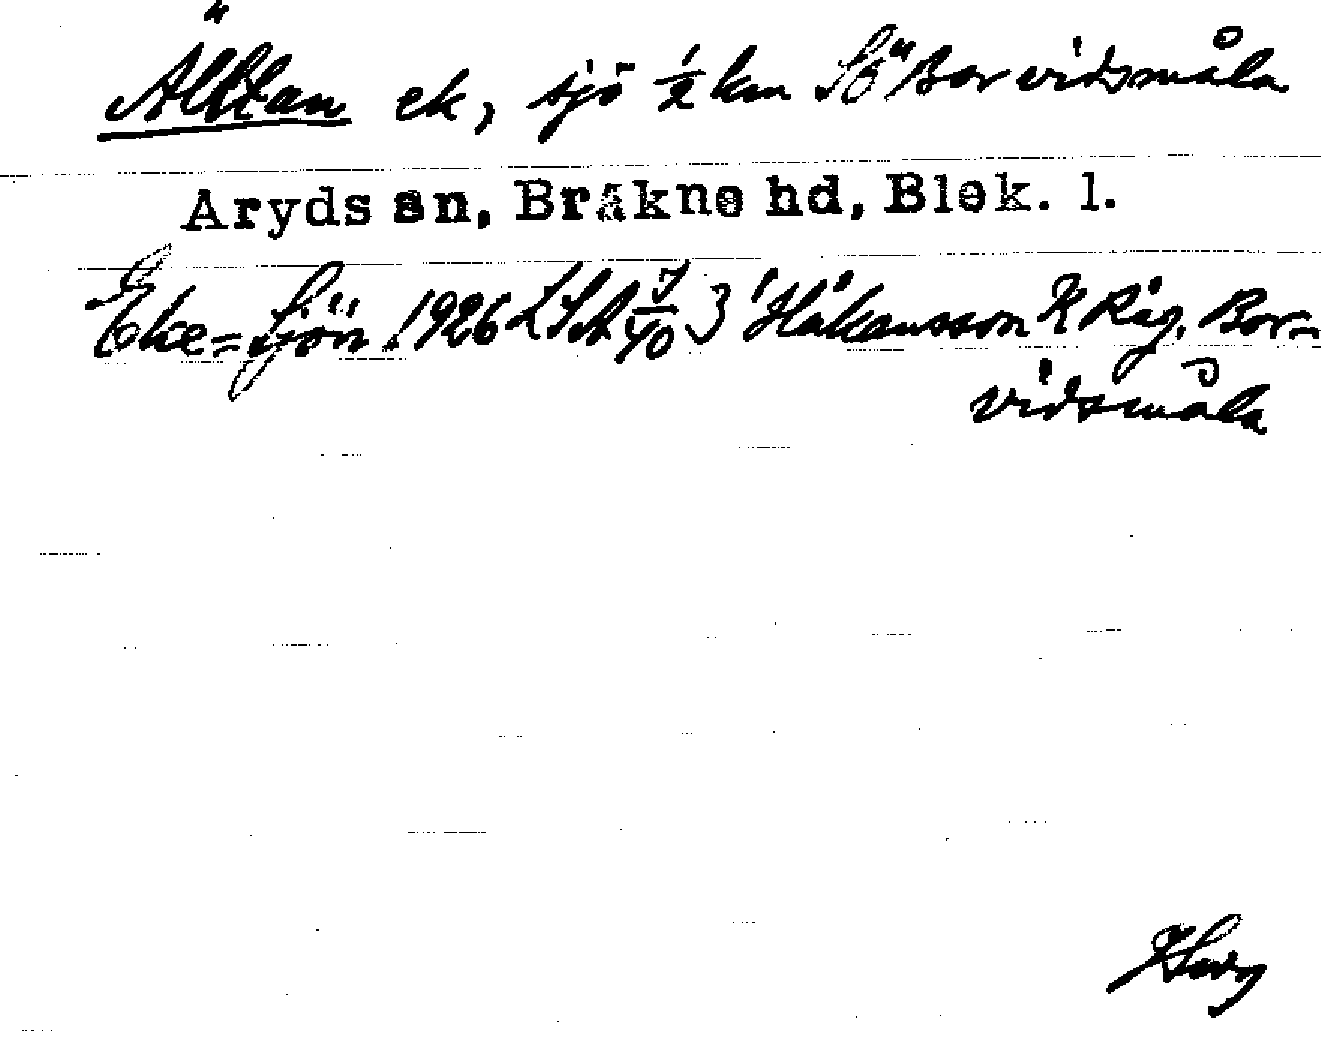 Älltan ek, sjö ½ km SÖ Borvidsmåla
Aryds sn, Bräkne hd, Blek. l.
Eke=sjön 1926 LSA 7/10 3 Håkansson Råg. Bor-
vidsmåla